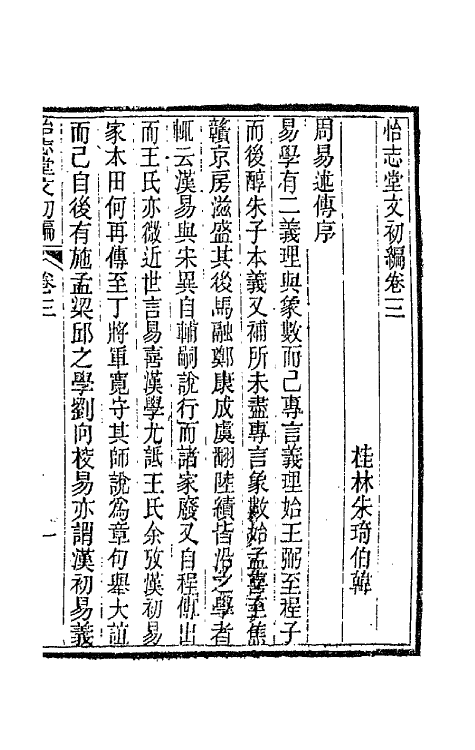 怡志堂文初編卷三
桂林朱琦伯韓
周易述傳序
易學有二義理與象數而已專言義理始王弼至程子
而後醇朱子本義又補所未盡專言象數始孟喜至焦
贛京房滋盛其後馬融鄭康成虞翻陸績皆沿之學者
輒云漢易與宋異自輔嗣說行而諸家廢又自程傳出
而王氏亦微近世言易喜漢學尤詆王氏余攷漢初易
家本田何再傳至丁將軍寬守其師說為章句舉大誼
而已自後有施孟梁邱之學劉向校易亦謂漢初易義
怡志堂文初編 卷三 一